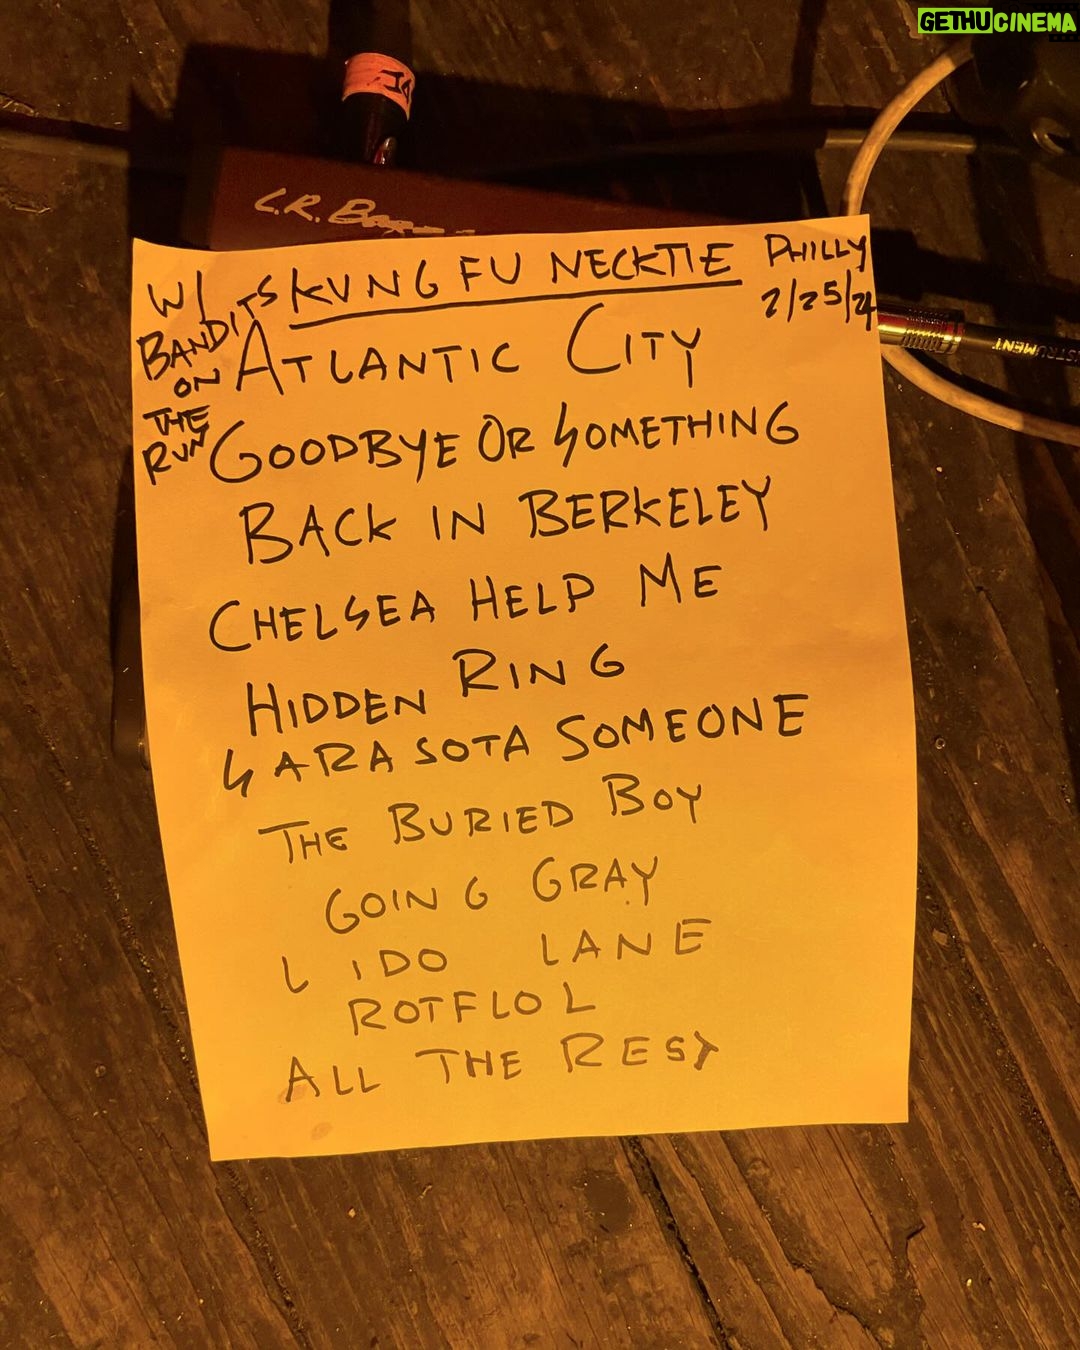 GETHUCINEMA
L.R. Bag
W/ BANDITS ON THE RUN
KUNG FU NECKTIE
PHILLY
2/25/24
INSTRUMENT
ATLANTIC CITY
GOODBYE OR SOMETHING
BACK IN BERKELEY
CHELSEA HELP ME
HIDDEN RING
SARASOTA SOMEONE
THE BURIED BOY
GOING GRAY
LIDO LANE
ROTFLOL
ALL THE REST